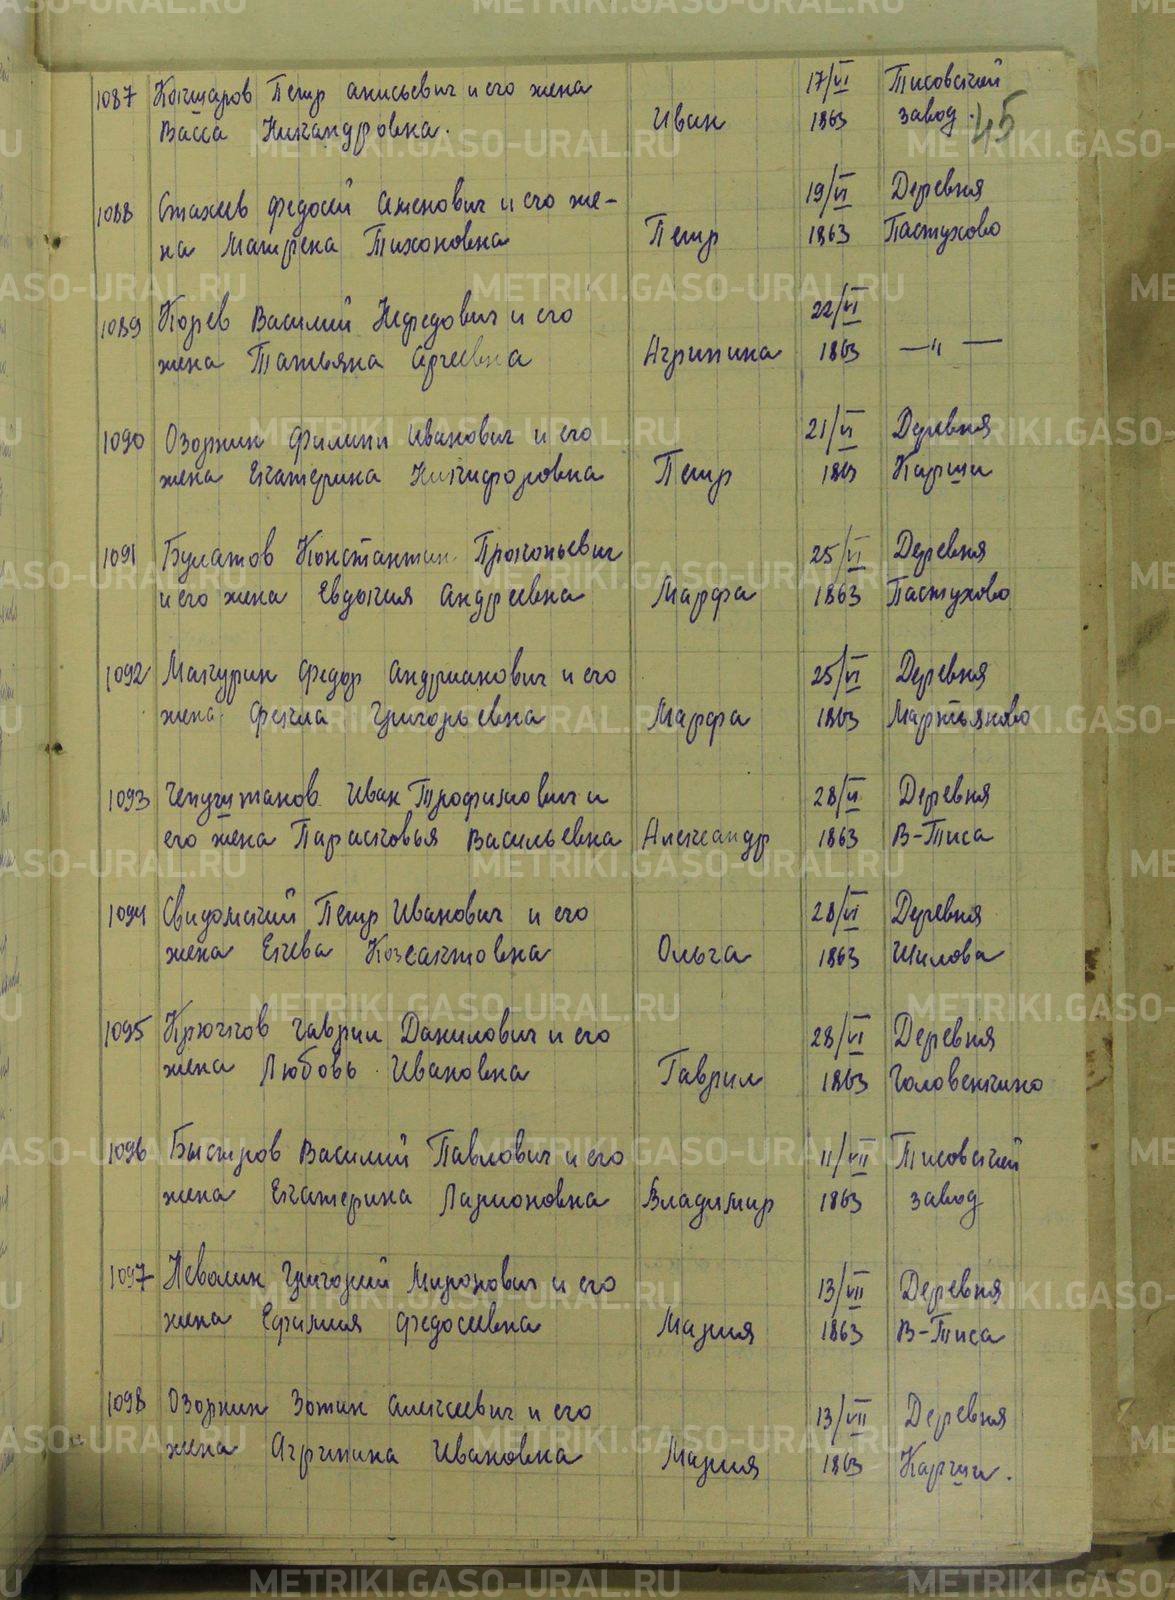 1087 Кочнаров Петр Анисьевич и его жена
Васса Никандровна. Иван
17/VI
1863
Тисовский
завод.
45
1088 Стахеев Федосей Аменович и его же-
на Матрена Тихоновна Петр
19/VI
1863
Деревня
Пастухово
1089 Корев Василий Нефедович и его
жена Татьяна Сергеевна Агрипина
22/VI
1863 —"—
1090 Озорнин Филипп Иванович и его
жена Екатерина Никифоровна Петр
21/VI
1863
Деревня
Карши
1091 Булатов Константин Прокопьевич
и его жена Евдокия Андреевна Марфа
25/VI
1863
Деревня
Пастухово
1092 Мачурин Федор Андрианович и его
жена Фекла Григорьевна Марфа
25/VI
1863
Деревня
Мартьяново
1093 Чепуштанов Иван Трофимович и
его жена Парасковья Васильевна Александр
28/VI
1863
Деревня
В-Тиса
1094 Свидомский Петр Иванович и его
жена Ольга
28/VI
1863
Деревня
Шилова
1095 Крючков Гаврил Данилович и его
жена Любовь Ивановна Гаврил
28/VI
1863
Деревня
Головенкино
1096 Быстров Василий Павлович и его
жена Екатерина Ларионовна Владимир
11/VII
1863
Тисовский
завод
1097 Неволин Григорий Миронович и его
жена Ефимия Федосеевна Мария
13/VII
1863
Деревня
В-Тиса
1098 Озорнин Зотик Алексеевич и его
жена Агрипина Ивановна Мария
13/VII
1863
Деревня
Карши.
METRIKI.GASO-URAL.RU